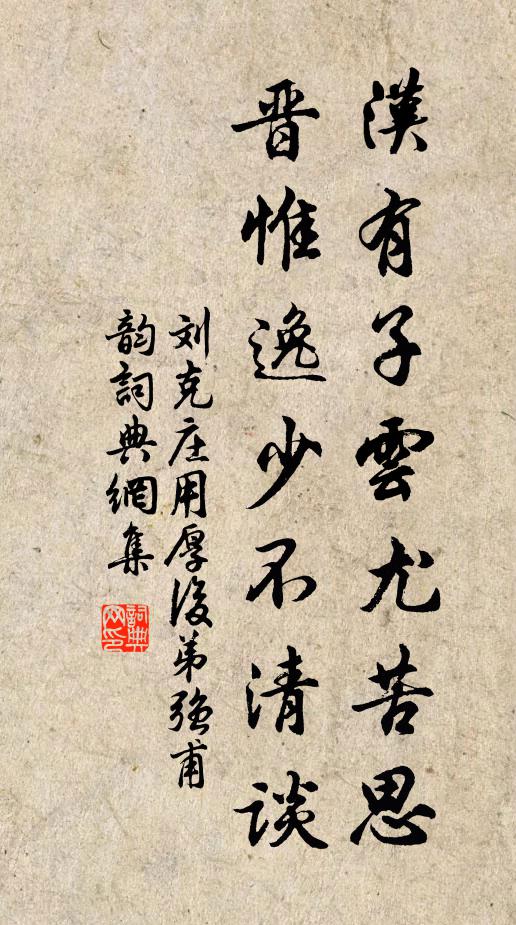 漢有子雲尤苦思
晋惟逸少不清談
刘克庄用厚後弟強甫
韵詞典網集
詞典網印